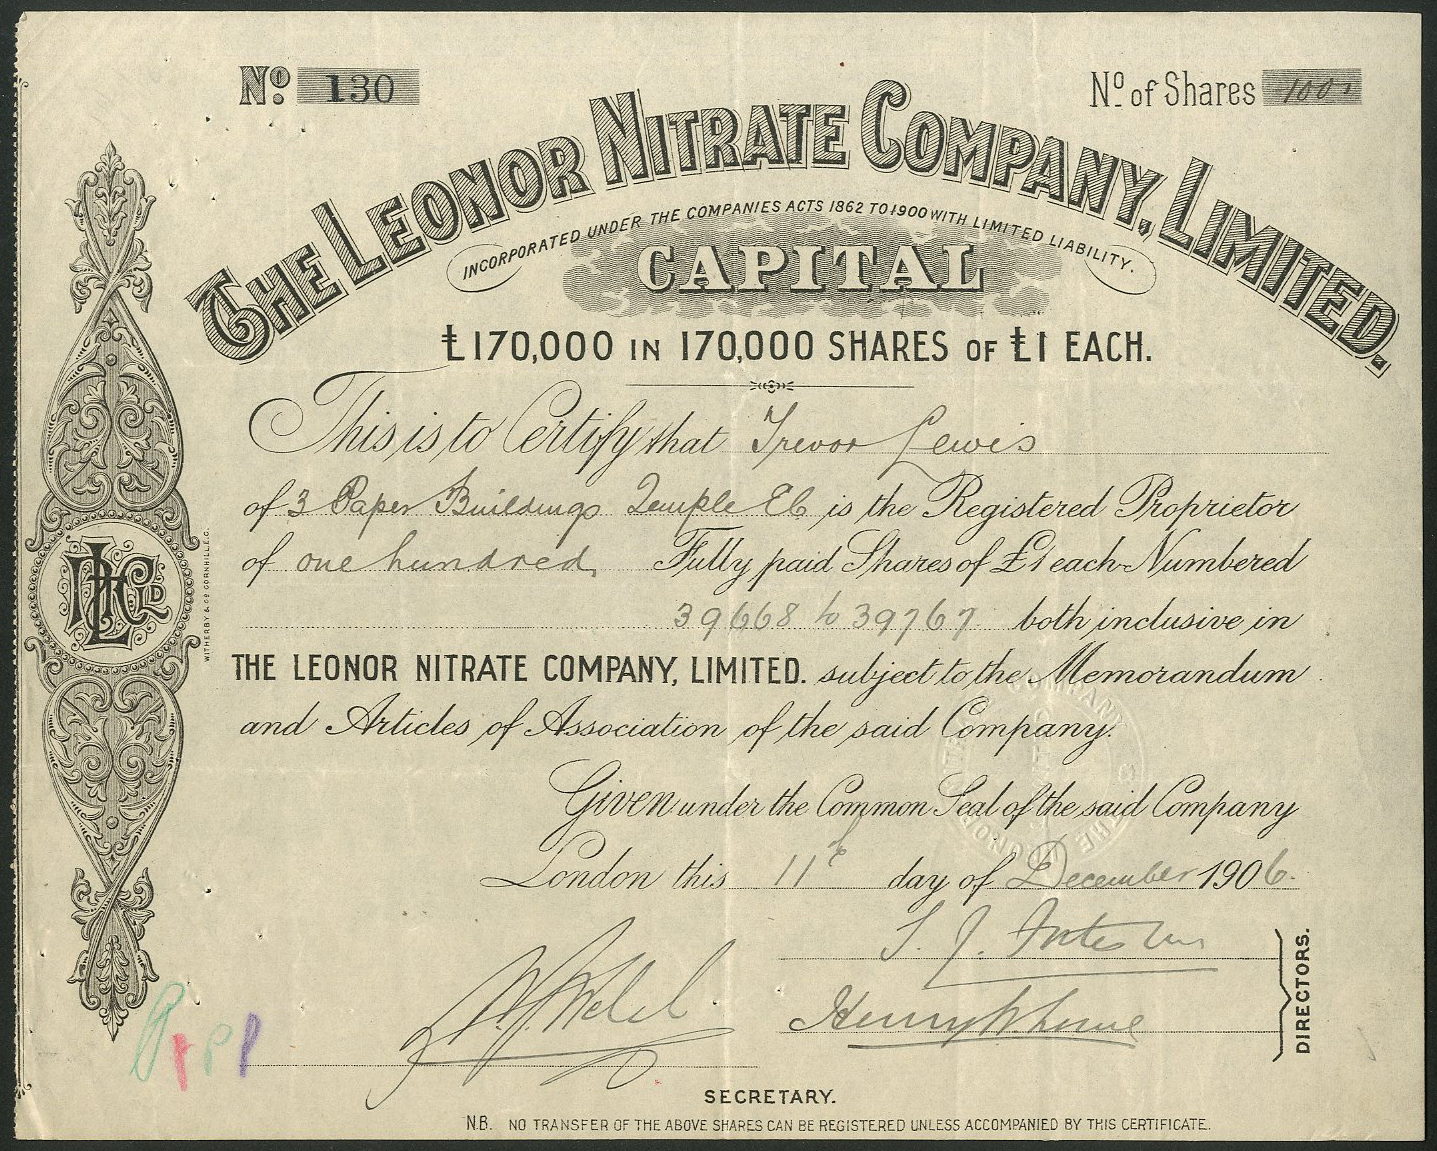 No. 130
No. of Shares 100
THE LEONOR NITRATE COMPANY, LIMITED.
INCORPORATED UNDER THE COMPANIES ACTS 1862 TO 1900 WITH LIMITED LIABILITY.
CAPITAL
£170,000 IN 170,000 SHARES OF £1 EACH.
This is to Certify that Trevor Lewis
of 3 Paper Buildings Temple EC is the Registered Proprietor
of one hundred Fully paid Shares of £1 each Numbered
39668 to 39767 both inclusive in
THE LEONOR NITRATE COMPANY, LIMITED. subject to the Memorandum
and Articles of Association of the said Company.
Given under the Common Seal of the said Company
London this 11th day of December 1906.
DIRECTORS.
SECRETARY.
N.B. NO TRANSFER OF THE ABOVE SHARES CAN BE REGISTERED UNLESS ACCOMPANIED BY THIS CERTIFICATE.
WITHERBY & CO CORNHILL E.C.